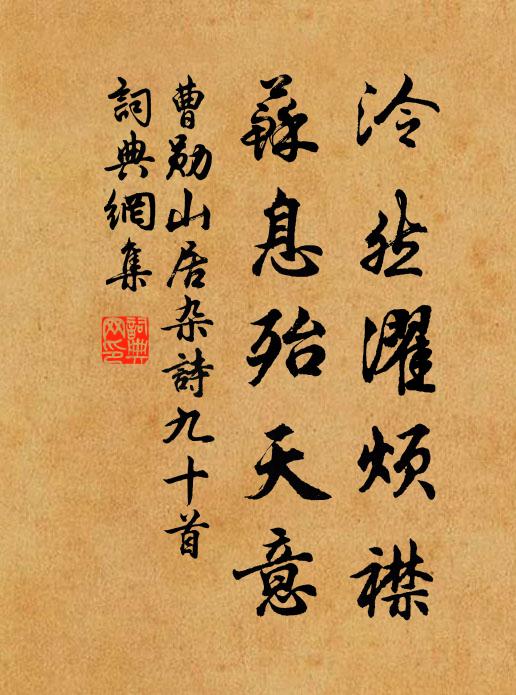 泠然濯烦襟
蘇息殆天意
曹勛山居杂詩九十首
詞典網集
詞典网印